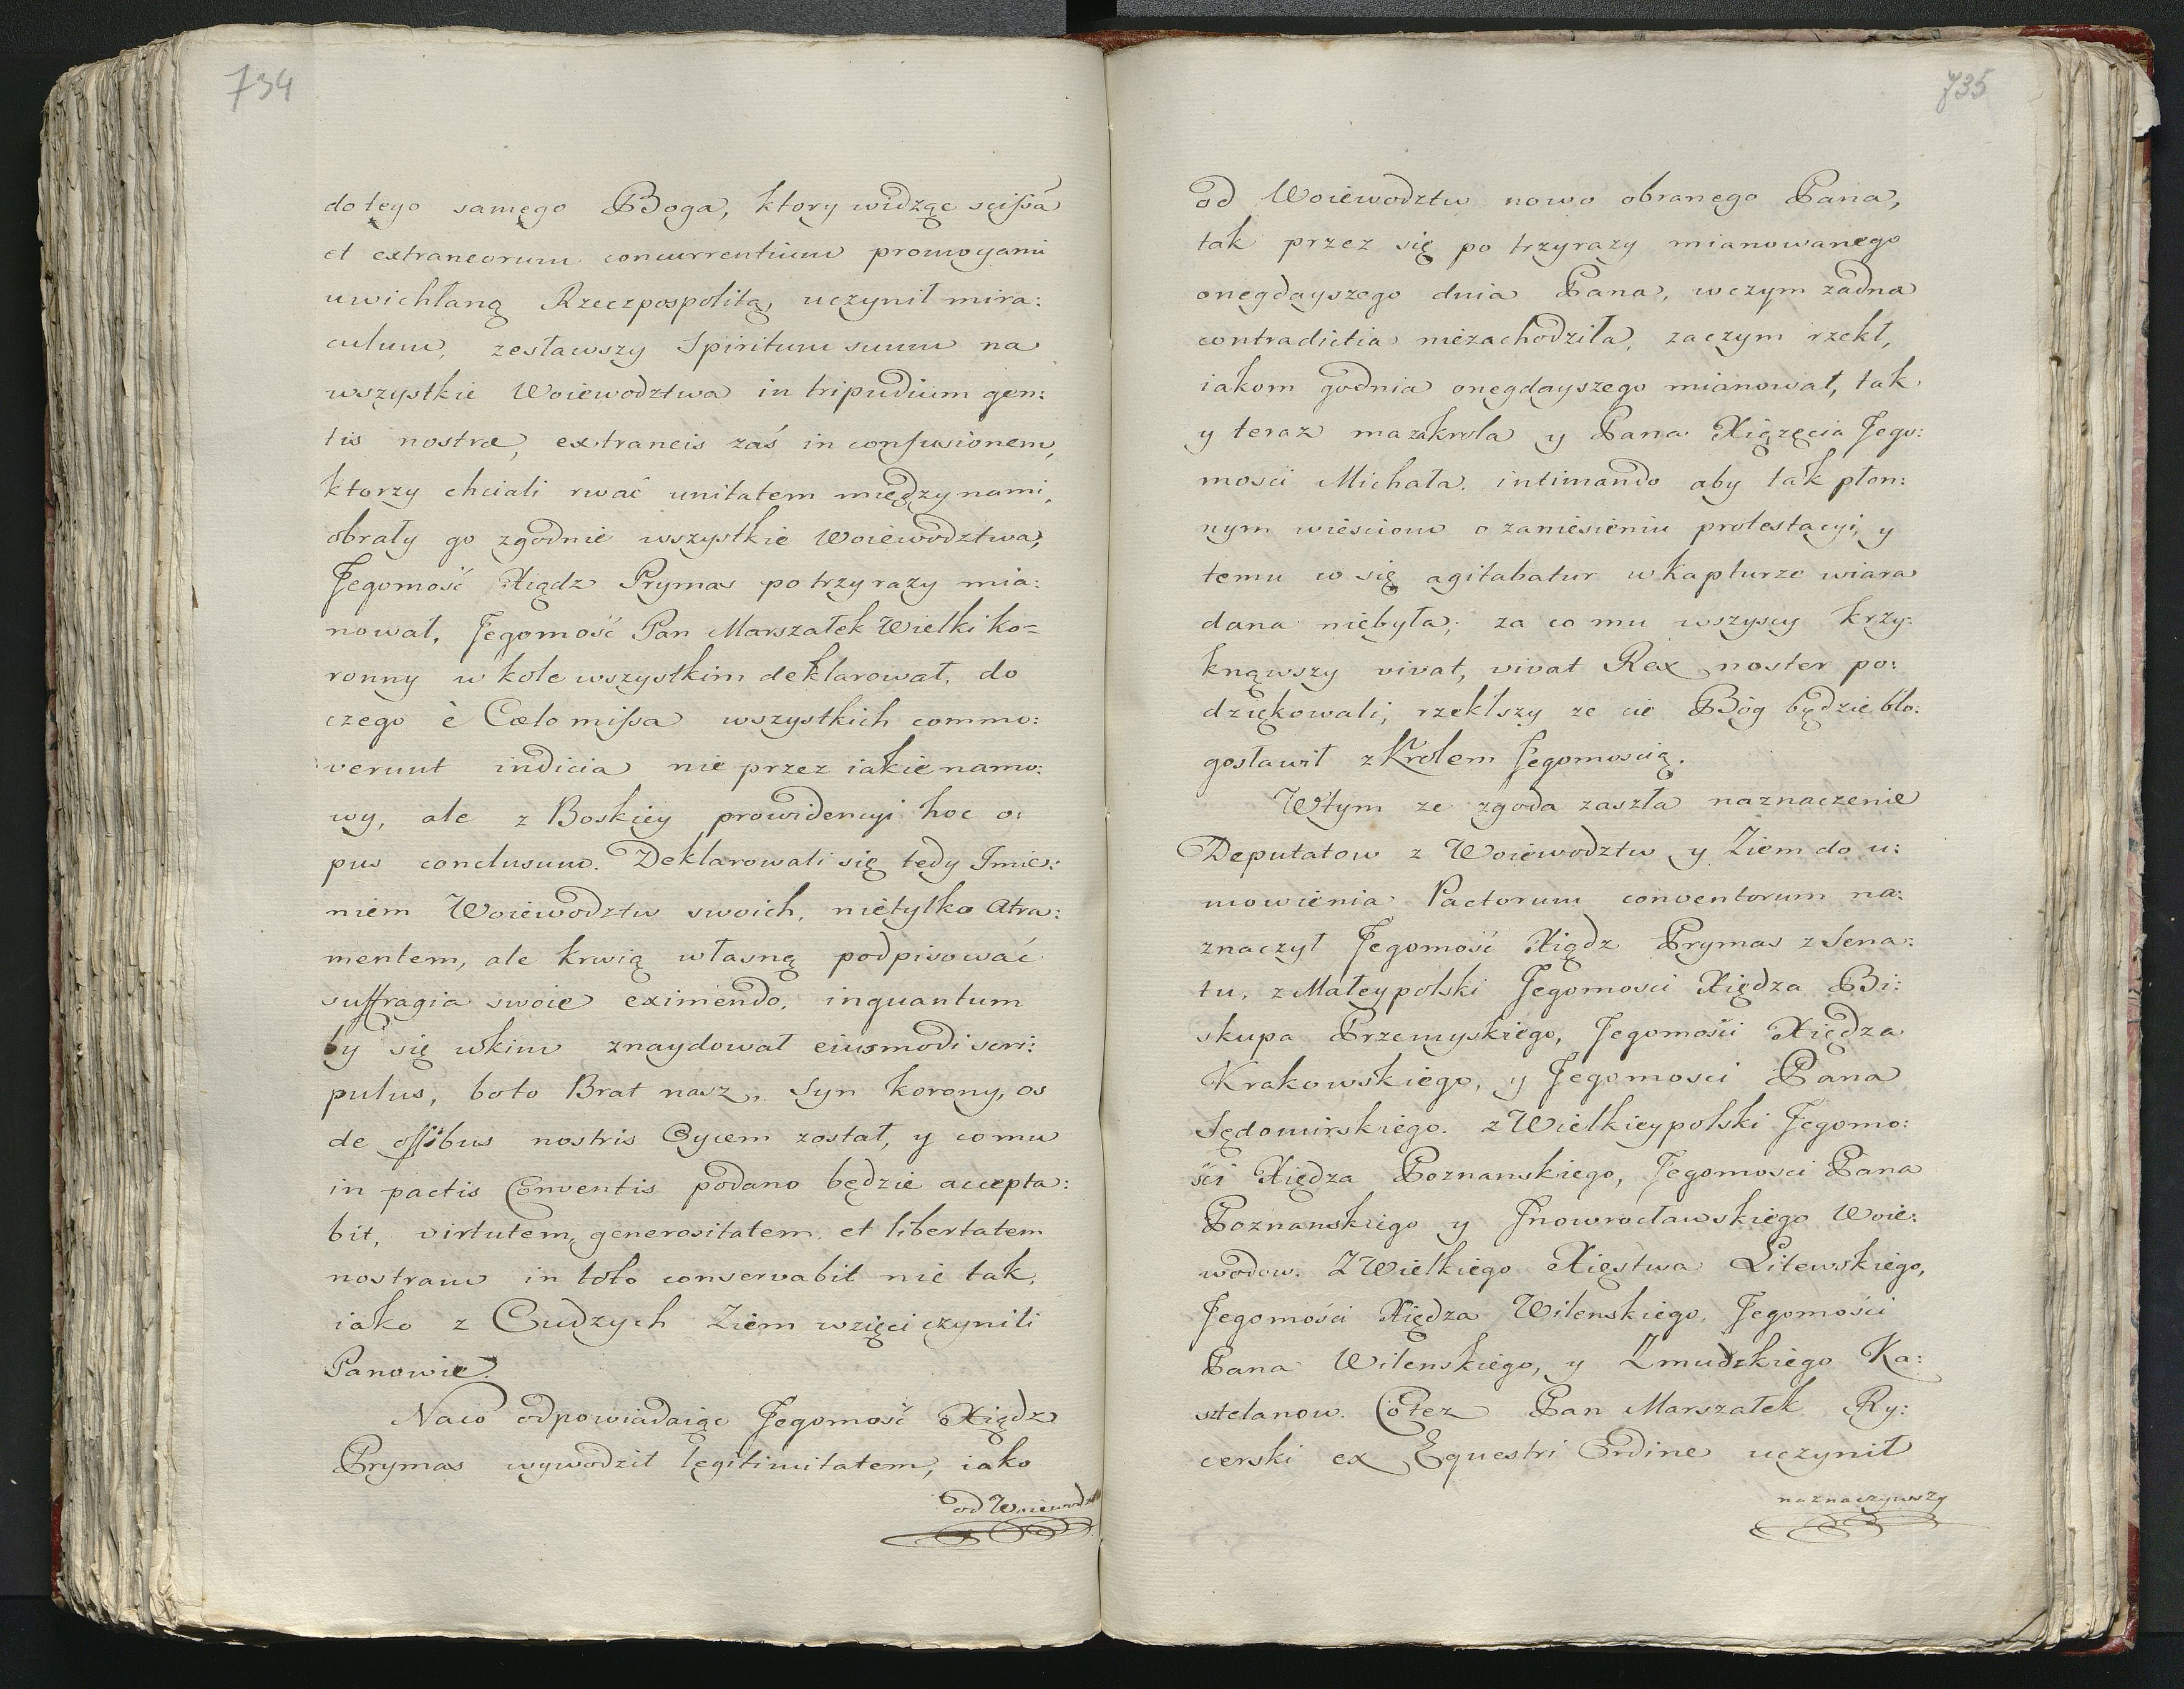 734
do tego samego Boga, ktory widząc scissa
et extraneorum concurrentium promocyami
uwichłaną Rzeczpospolitą, uczynił mira:
culum, zesławszy Spiritum suum na
wszystkie Woiewodztwa in tripudium gen:
tis nostræ, extraneis zaś in confusionem,
ktorzy chcieli rwać unitatem między nami,
obrały go zgodnie wszystkie Woiewodztwa,
Jegomość Xiądz Prymas po trzy razy mia:
nował, Jegomość Pan Marszałek Wielki ko=
ronny w kole wszystkim deklarował, do
czego è Cœlo missa wszystkich commo:
verunt indicia nie przez iakie namo:
wy, ale z Boskiey prowidencyi hoc o:
pus conclusum. Deklarowali się tedy Imie:
niem Woiewodztw swoich, nietylko Atra:
mentem, ale krwią własną podpisować
suffragia swoie eximendo, inquantum
by się wkim znaydował eiusmodi scru:
pulus, bo to Brat nasz, Syn korony, os
de ossibus nostris Oycem został, y comu
in pactis Conventis podano będzie accepta:
bit, virtutem, generositatem, et libertatem
nostram in toto conservabit nie tak,
iako z Cudzych Ziem wzięci czynili
Panowie.
Naco odpowiadaiąc Jegomość Xiądz
Prymas wywodził legitimitatem, iako
od Woiewodz
735
od Woiewodztw nowo obranego Pana,
tak przez się po trzyrazy mianowanego
onegdayszego dnia Pana, wczym żadna
contradictia niezachodziła, zaczym rzekł,
iakom godnia onegdayszego mianował, tak
y teraz ma zakrola y Pana Xiążęcia Jego:
mosci Michała, intimando aby tak płon:
nym wiesciom o zaniesieniu protestacyi, y
temu co się agitabatur w Kapturze wiara
dana niebyła; za co mu wszyscy krzy:
knąwszy vivat, vivat Rex noster po:
dziękowali, rzekłszy ze cie Bóg będzie bło:
gosławił z Krolem Jegomoscią.
Wtym ze zgoda zaszła naznaczenie
Deputatow z Woiewodztw y Ziem do u:
mowienia Pactorum conventorum na:
znaczył Jegomość Xiądz Prymas z Sena:
tu, z Małeypolski Jegomosci Xiędza Bi:
skupa Przemyskiego, Jegomości Xiędza
Krakowskiego, y Jegomosci Pana
Sędomirskiego. z Wielkieypolski Jegomo:
ści Xiędza Poznanskiego, Jegomosci Pana
Poznanskiego y Jnowrocławskiego Woie:
wodow. Z Wielkiego Xięstwa Litewskiego,
Jegomości Xiędza Wilenskiego, Jegomości
Pana Wilenskiego, y Zmudzkiego Ka:
sztelanow. Coteż Pan Marszałek Ry:
cerski ex Equestri Ordine uczynił
naznaczywszy